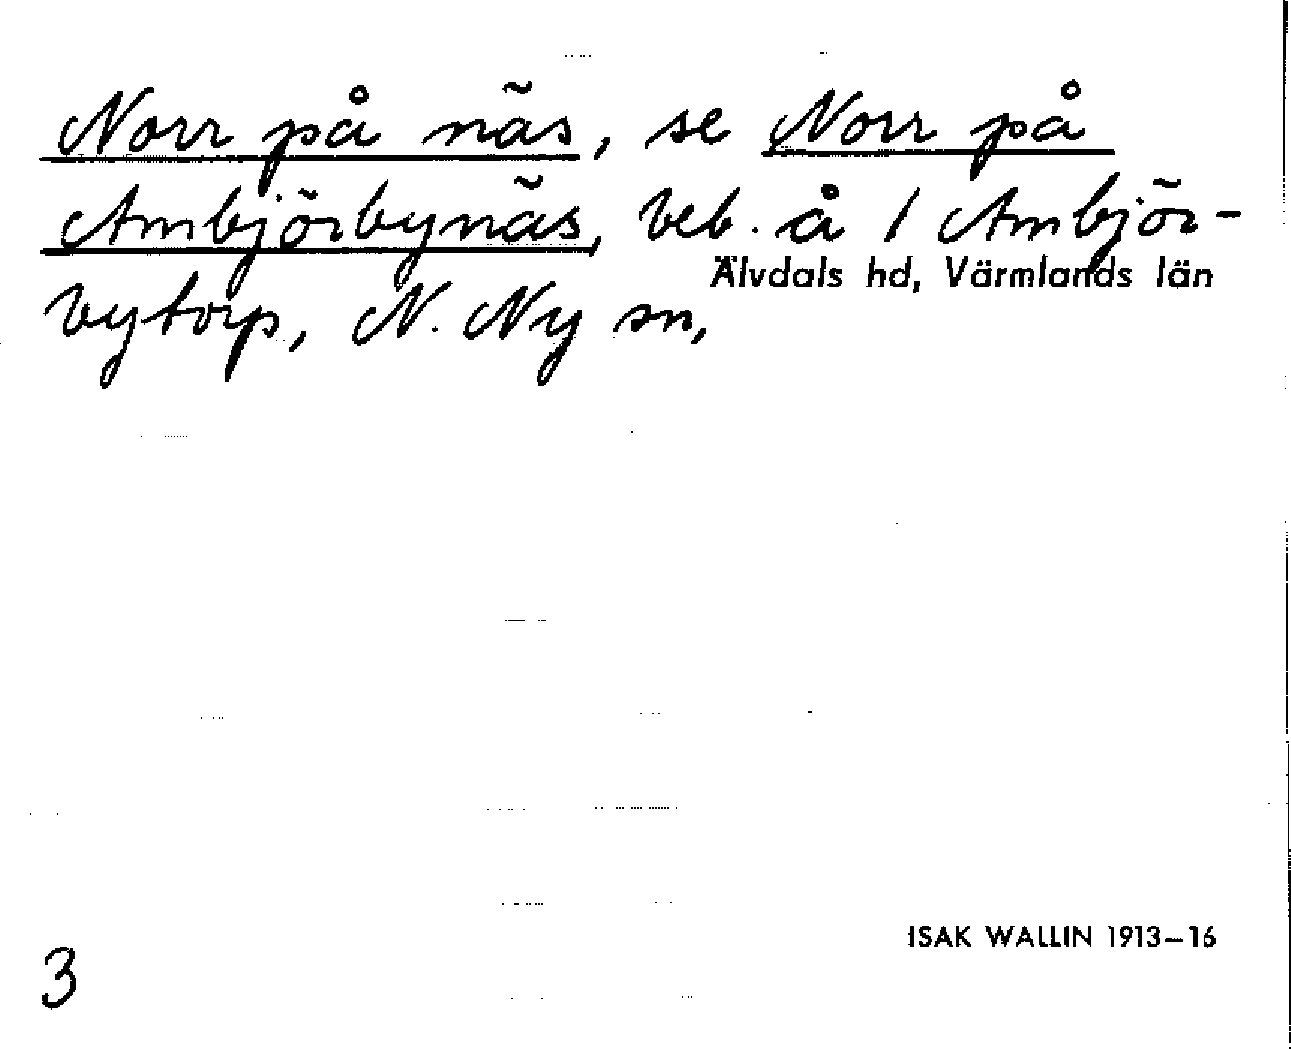 Norr på näs, se Norr på
Ambjörbynäs, beb. å / Ambjör-
bytorp, N. Ny sn,
Älvdals hd, Värmlands län
ISAK WALLIN 1913–16
3